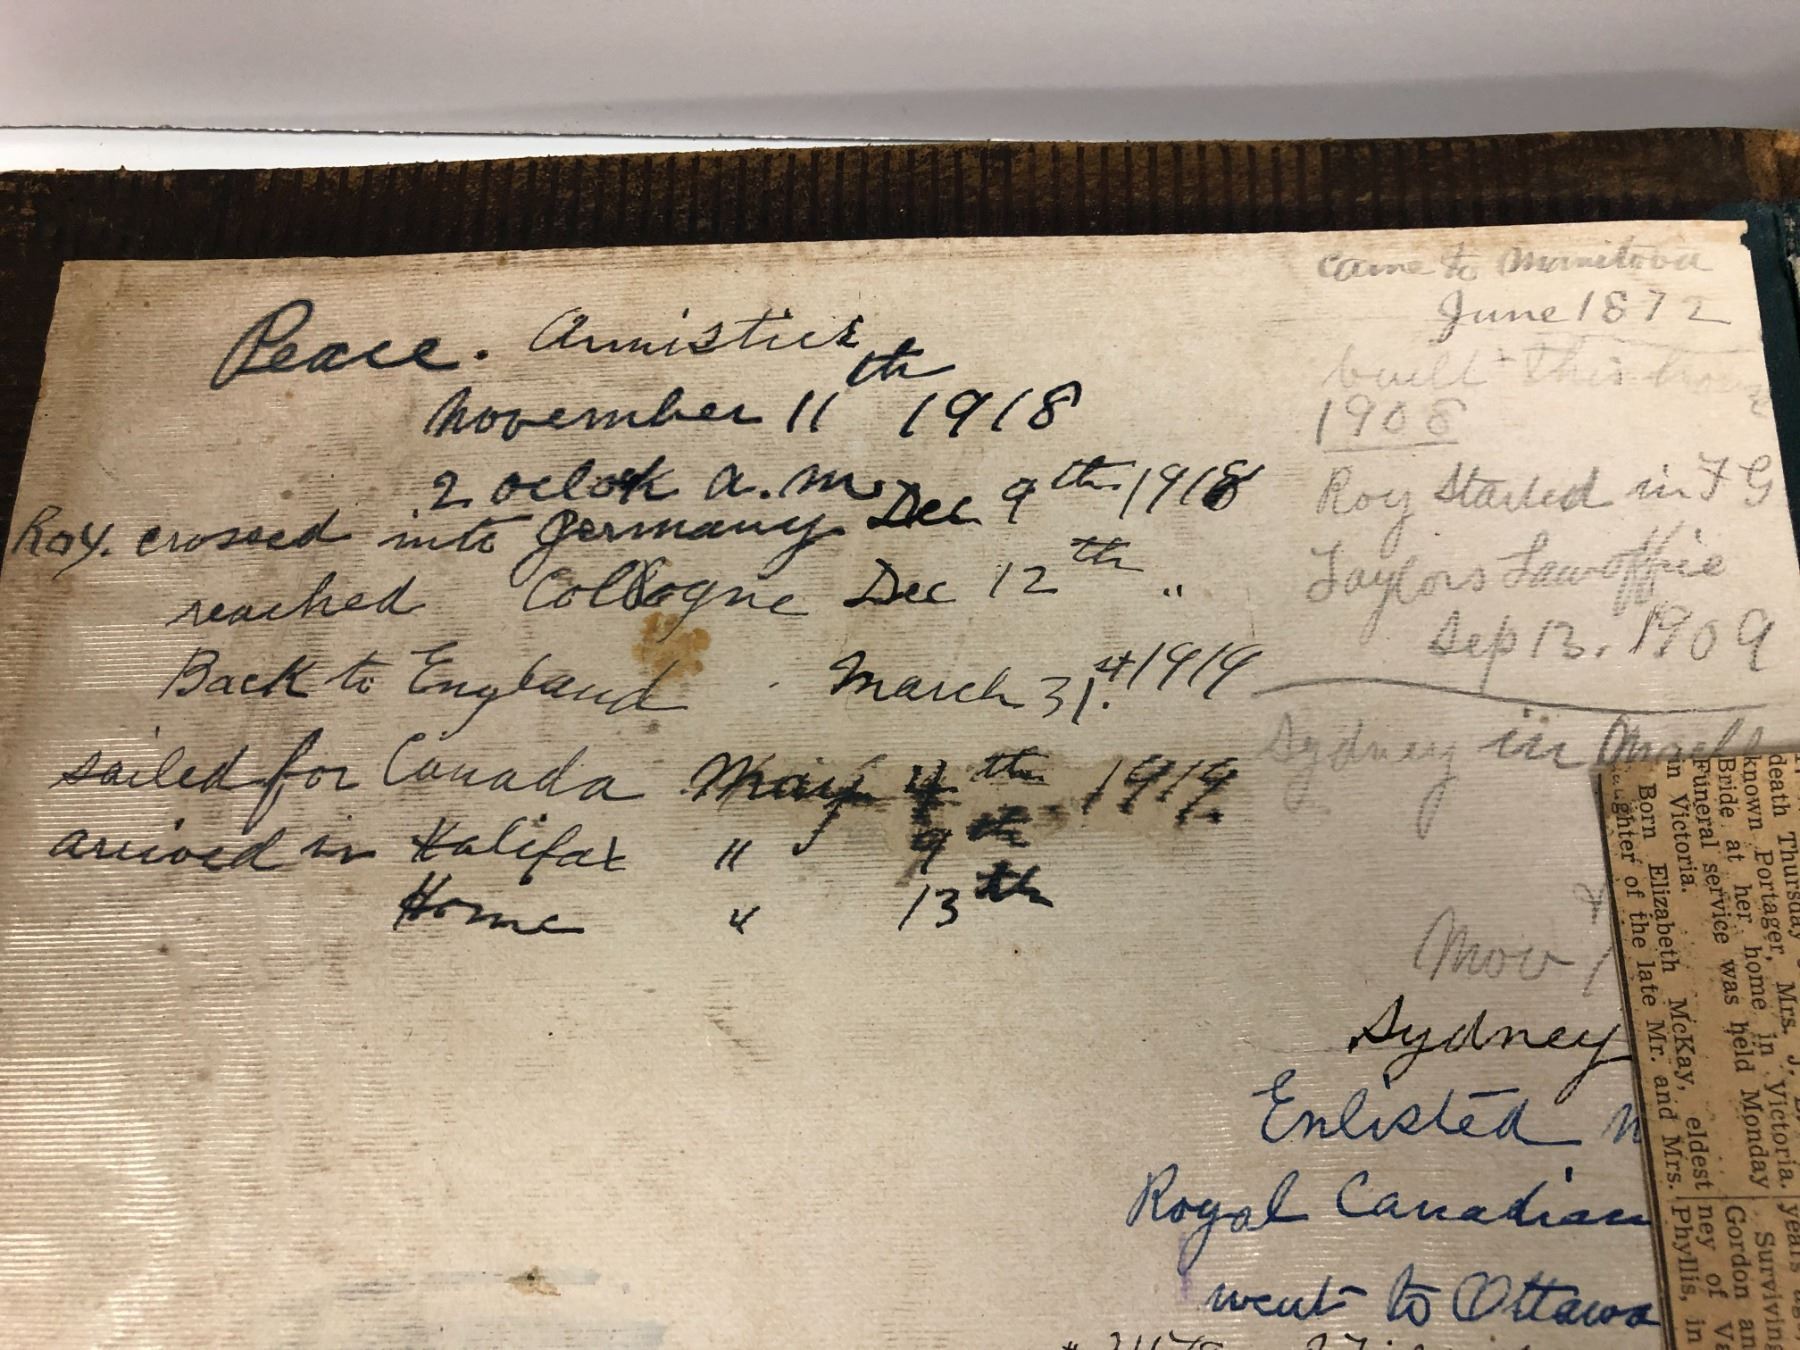 Peace. Armistice
November 11th 1918
2 oclock a.m.
Roy. crossed into Germany Dec 9th 1918
reached Cologne Dec 12th "
Back to England March 31st 1919
sailed for Canada May 4th 1919.
arrived in Halifax " 9th
Home " 13th
came to Manitoba
June 1872
built this house
1908
Roy Started in F G
Taylors Law office
Sep 13. 1909
Sydney in
Nov
Sydney
Enlisted
Royal Canadian
went to Ottawa
death Thursday
known Portager, Mrs. J.
Bride at her home in Victoria.
Funeral service was held Monday
in Victoria.
Born Elizabeth McKay, eldest
ughter of the late Mr. and Mrs.
years
Surviving
Gordon an
ney of Va
Phyllis, in